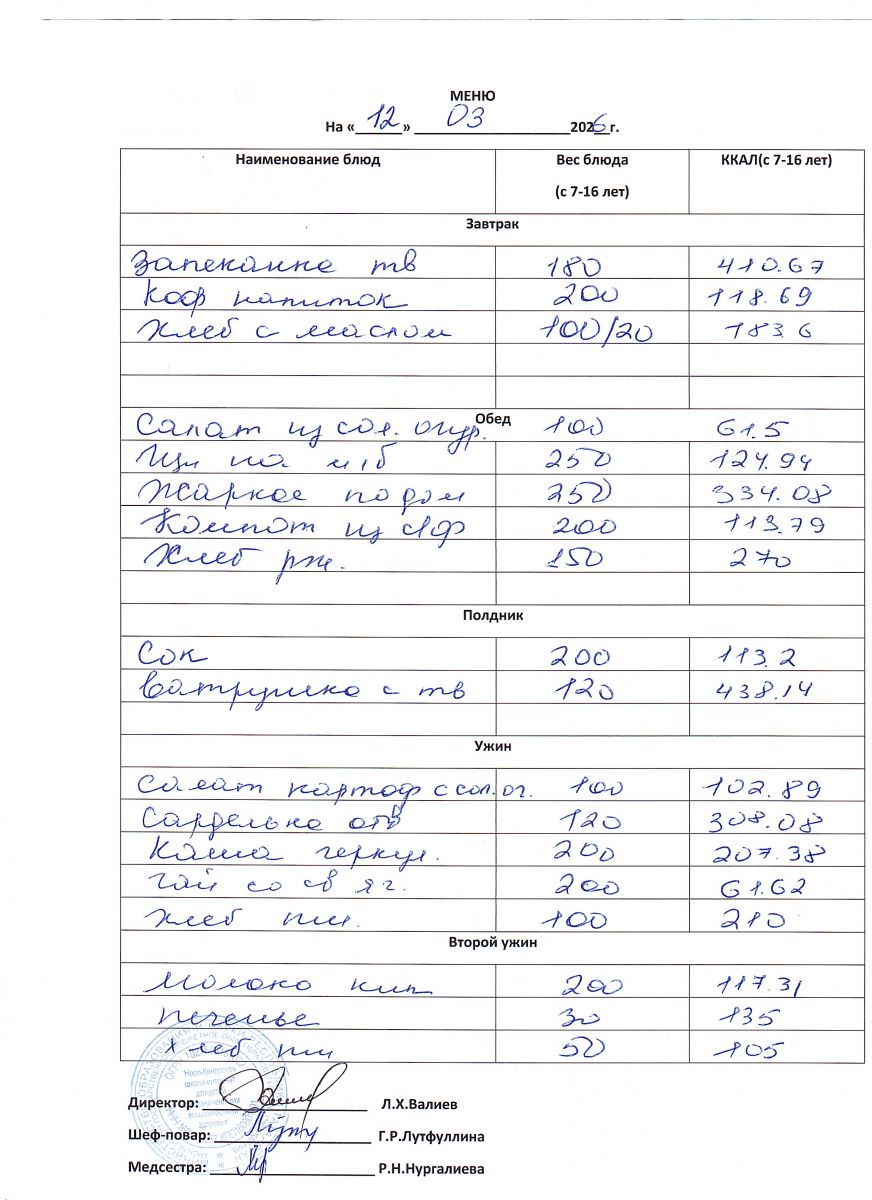 МЕНЮ
На «12» 03 2026 г.
Наименование блюд Вес блюда (с 7-16 лет) ККАЛ(с 7-16 лет)
Завтрак
Запеканка тв 180 410.67
Коф напиток 200 118.69
Хлеб с маслом 100/20 183.6
Обед
Салат из сол. огур. 100 61.5
Щи на м/б 250 124.94
Жаркое по дом 250 334.08
Компот из с/ф 200 113.79
Хлеб рж. 150 270
Полдник
Сок 200 113.2
Ватрушка с тв 120 438.14
Ужин
Салат картоф с сол. ог. 100 102.89
Сарделька отв 120 308.08
Каша геркул. 200 207.38
Чай со св яг. 200 61.62
Хлеб пш. 100 210
Второй ужин
Молоко кип 200 117.31
Печенье 30 135
Хлеб пш 50 105
Директор: Л.Х.Валиев
Шеф-повар: Г.Р.Лутфуллина
Медсестра: Р.Н.Нургалиева